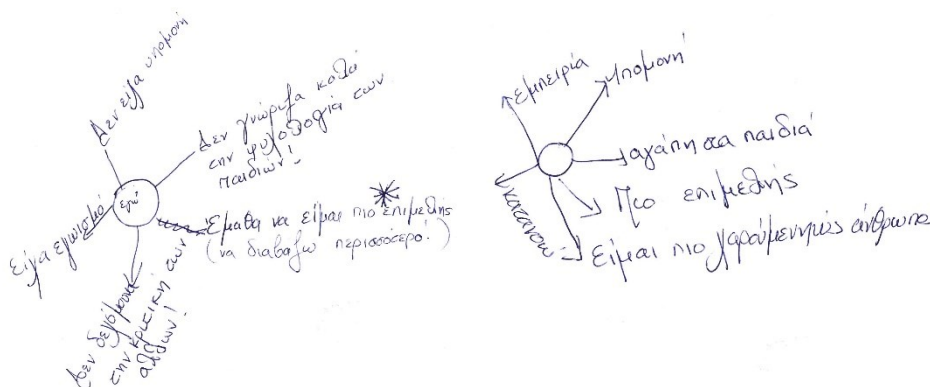 Δεν είχα υπομονή
Δεν γνώριζα καλά
την ψυχολογία των
παιδιών!
εγώ
Είχα εγωισμό
Έμαθα να είμαι πιο επιμεθής
(να διαβάζω περισσότερό!)
Δεν δεχόμουνα
την κριτική των
άλλων!
εμπειρία
υπομονή
αγάπη στα παιδιά
Πιο επιμεθής
κατανοώ
Είμαι πιο χαρούμενη ως άνθρωπο